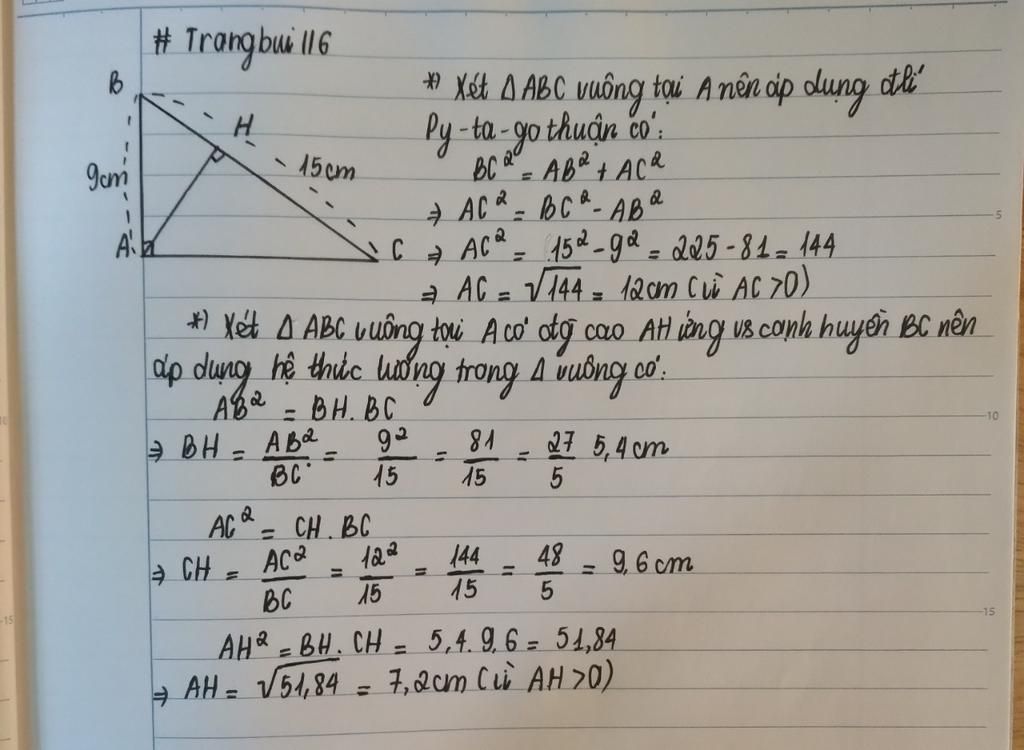 # Trangbui116
B
H
9cm
15cm
A
C
*) Xét Δ ABC vuông tại A nên áp dụng đlí
Py-ta-go thuận có:
BC² = AB² + AC²
⇒ AC² = BC² - AB²
⇒ AC² = 15² - 9² = 225 - 81 = 144
⇒ AC = √144 = 12cm (vì AC > 0)
*) Xét Δ ABC vuông tại A có đg cao AH ứng vs cạnh huyền BC nên
áp dụng hệ thức lượng trong Δ vuông có:
AB² = BH. BC
⇒ BH = AB²/BC = 9²/15 = 81/15 = 27/5 5,4cm
AC² = CH. BC
⇒ CH = AC²/BC = 12²/15 = 144/15 = 48/5 = 9,6cm
AH² = BH. CH = 5,4. 9,6 = 51,84
⇒ AH = √51,84 = 7,2cm (vì AH > 0)
5
10
15
10
15